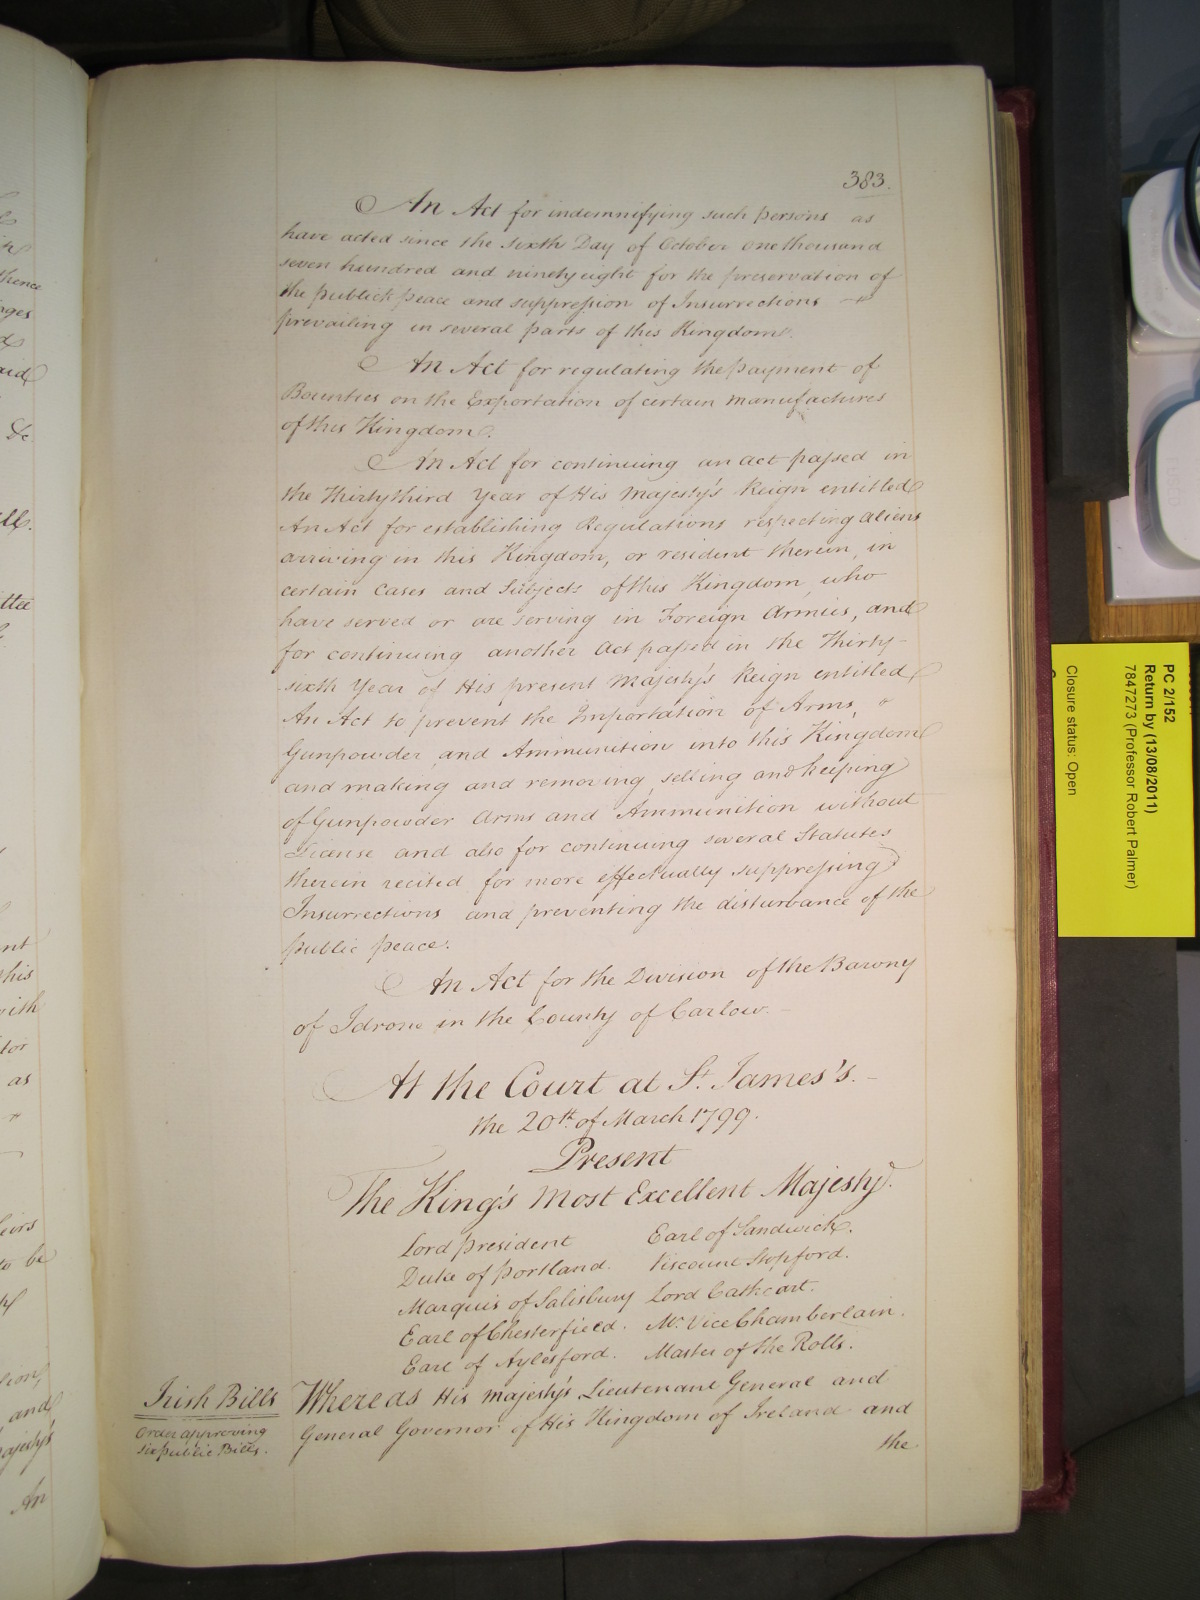 383.
An Act for indemnifying such persons as
have acted since the sixth Day of October one thousand
seven hundred and ninety eight for the preservation of
the publick peace and suppression of Insurrections
prevailing in several parts of this Kingdom.
An Act for regulating the payment of
Bounties on the Exportation of certain manufactures
of this Kingdom.
An Act for continuing an act passed in
the Thirty third Year of His Majesty's Reign entitled
An Act for establishing Regulations respecting aliens
arriving in this Kingdom, or resident therein, in
certain Cases and Subjects of this Kingdom who
have served or are serving in Foreign Armies, and
for continuing another Act passed in the Thirty-
sixth Year of His present Majesty's Reign entitled
An Act to prevent the Importation of Arms,
Gunpowder and Ammunition into this Kingdom
and making and removing selling and keeping
of Gunpowder Arms and Ammunition without
License and also for continuing several Statutes
therein recited for more effectually suppressing
Insurrections and preventing the disturbance of the
public peace.
An Act for the Division of the Barony
of Idrone in the County of Carlow.
At the Court at St. James's.
the 20th. of March 1799.
Present
The King's most Excellent Majesty.
Lord president Earl of Sandwich.
Duke of portland. Viscount Stopford.
Marquis of Salisbury Lord Cathcart.
Earl of Chesterfield. Mr. Vice Chamberlain.
Earl of Aylesford. Master of the Rolls.
Irish Bills
Order approving
six public Bills.
Whereas His majesty's Lieutenant General and
General Governor of His Kingdom of Ireland and
the
thence
and
&c
as
to be
and
An
PC 2/152
Return by (13/08/2011)
7847273 (Professor Robert Palmer)
Closure status: Open